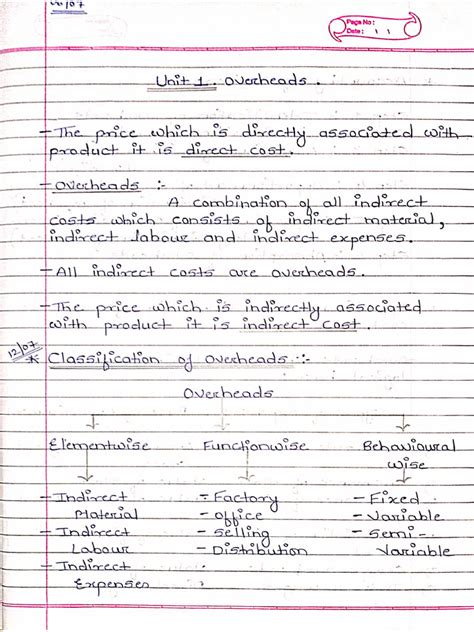 Page No:
Date:
Unit 1 . Overheads .
- The price which is directly associated with
product it is direct cost.
- Overheads :-
A combination of all indirect
costs which consists of indirect material,
indirect labour and indirect expenses.
- All indirect costs are overheads.
- The price which is indirectly associated
with product it is indirect cost.
12/07
* Classification of overheads :-
Overheads
Elementwise Functionwise Behavioural
wise
- Indirect - Factory - Fixed
Material - office - Variable
- Indirect - Selling - Semi-
Labour - Distribution Variable
- Indirect
Expenses